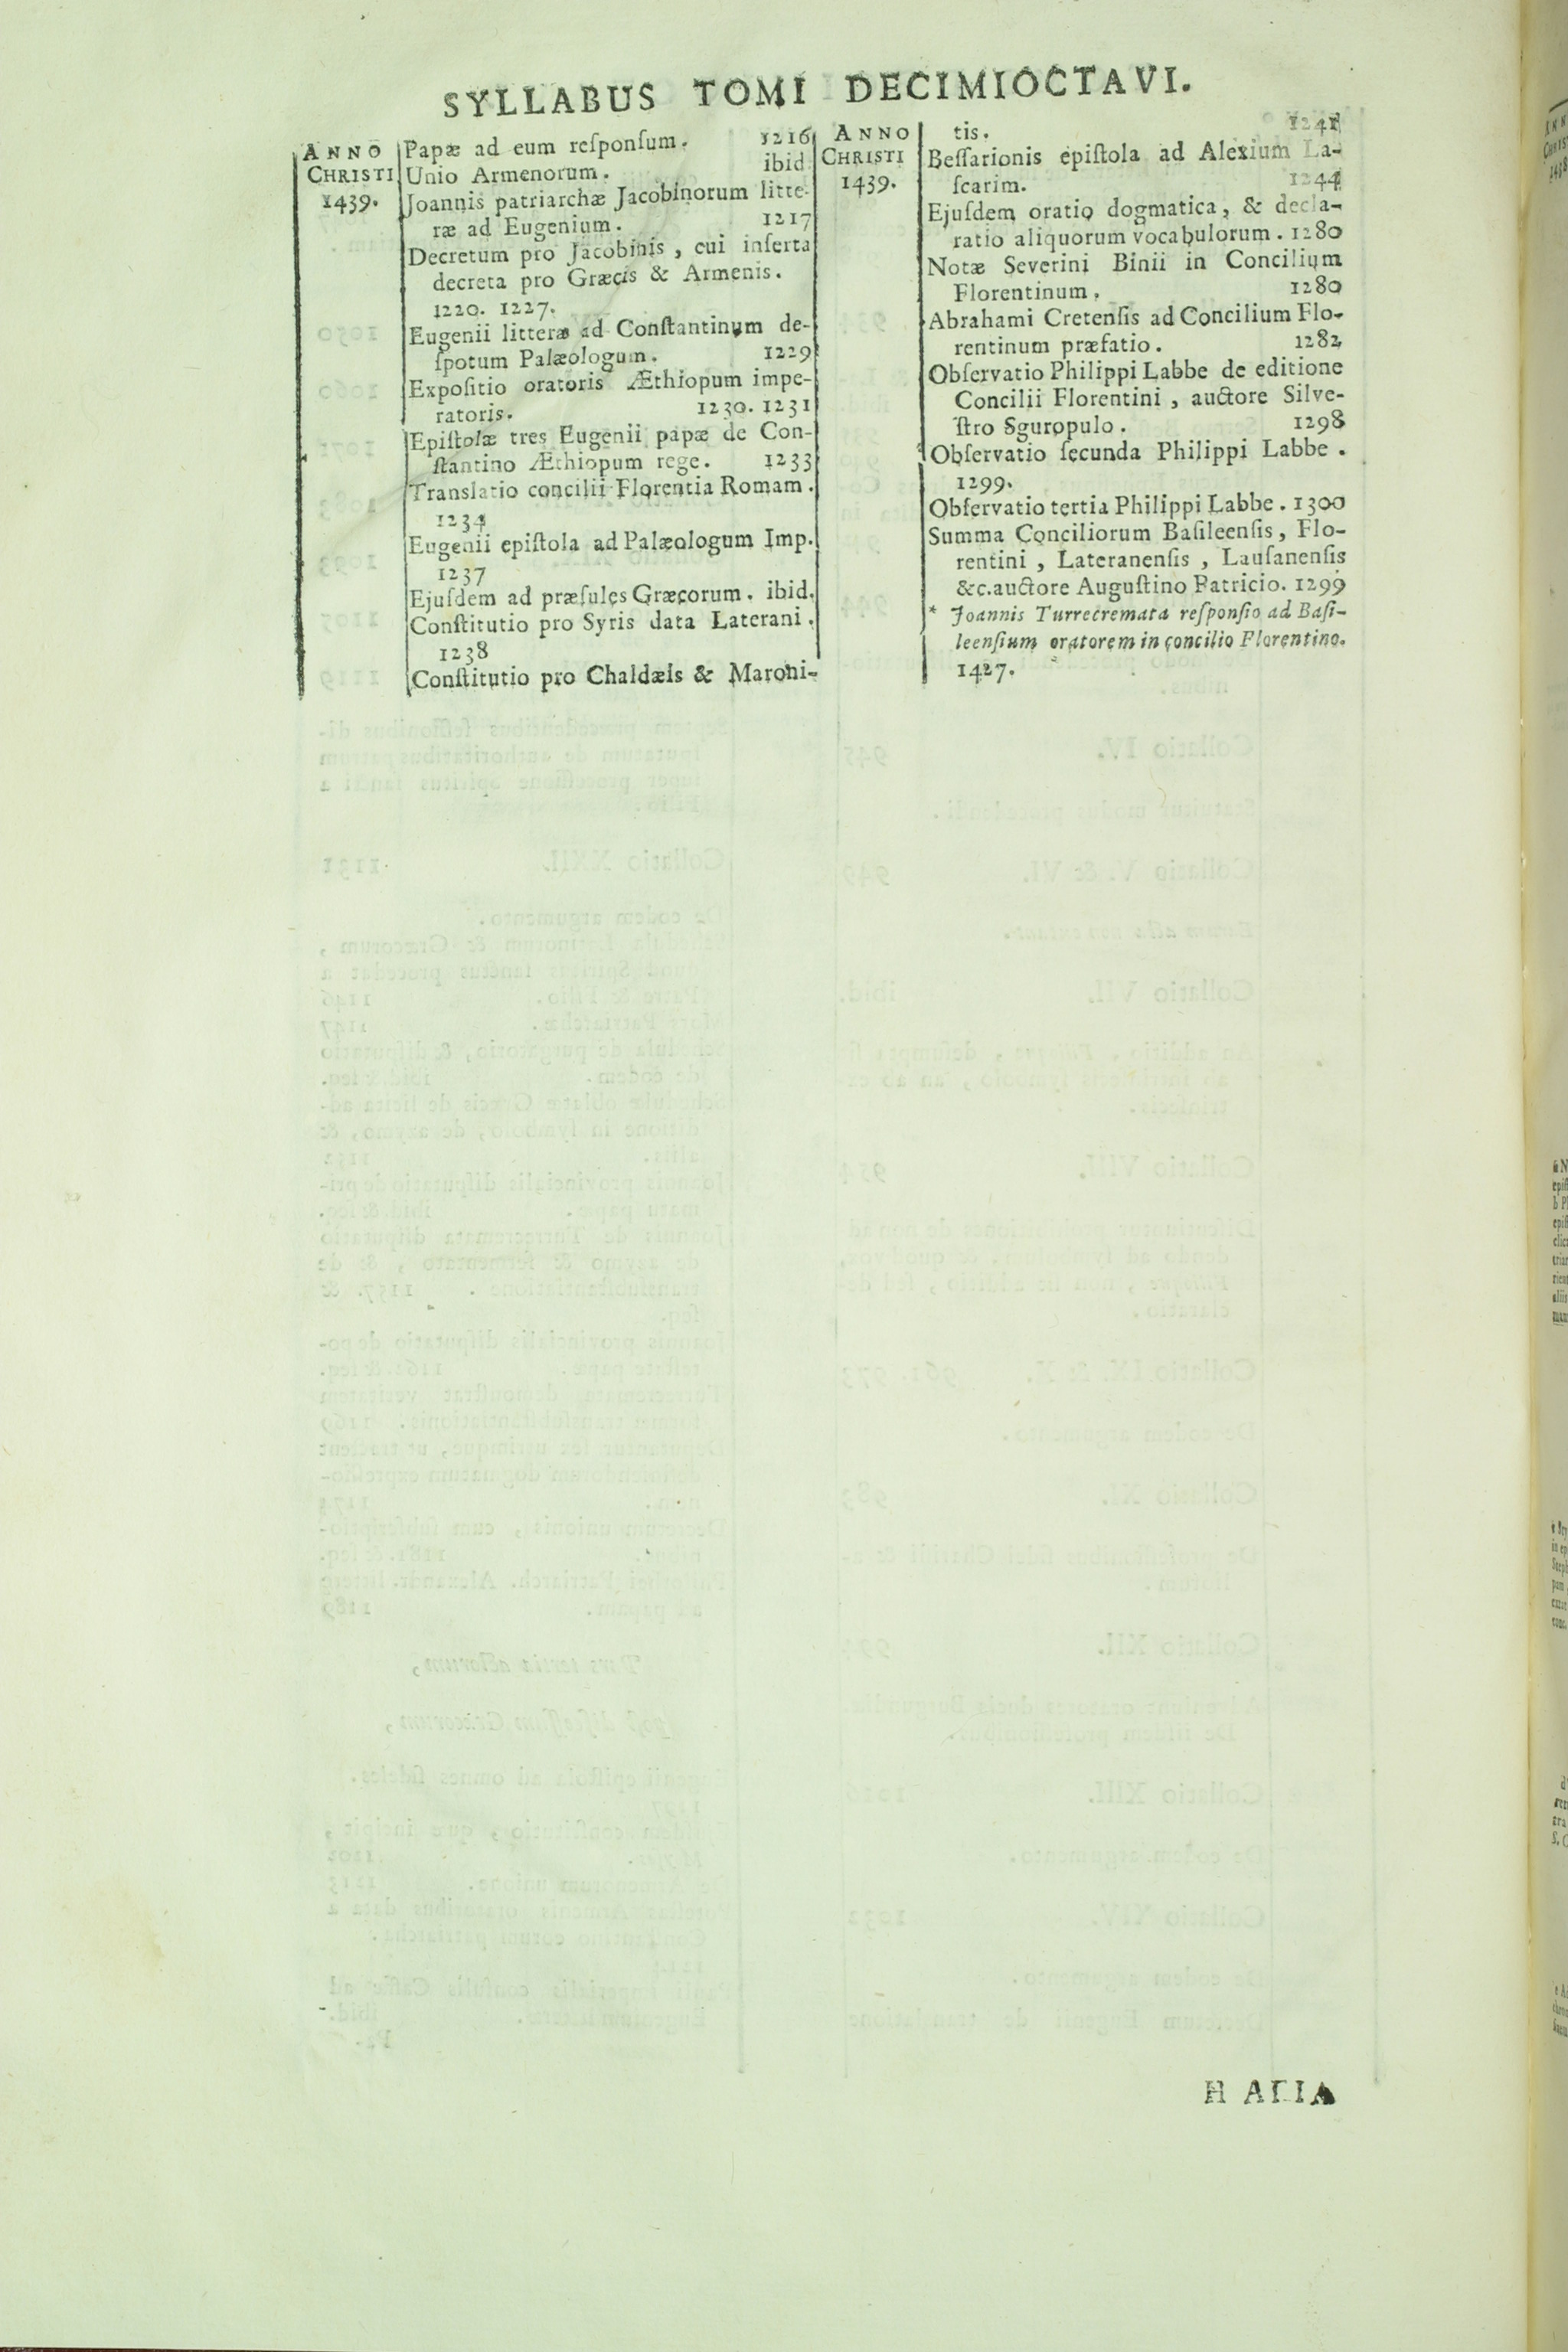 SYLLABUS TOMI DECIMIOCTAVI.
ANNO
CHRISTI
1439.
Papæ ad eum reſponſum. 1216
Unio Armenorum. ibid
Joannis patriarchæ Jacobinorum litte-
ræ ad Eugenium. 1217
Decretum pro Jacobinis, cui inſerta
decreta pro Græcis & Armenis.
1220. 1227.
Eugenii litteræ ad Conſtantinum de-
ſpotum Palæologum. 1229
Expoſitio oratoris Æthiopum impe-
ratoris. 1230. 1231
Epiſtolæ tres Eugenii papæ de Con-
ſtantino Æthiopum rege. 1233
Translatio concilii Florentia Romam.
1234
Eugenii epiſtola ad Palæologum Imp.
1237
Ejuſdem ad præſules Græcorum. ibid.
Conſtitutio pro Syris data Laterani.
1238
Conſtitutio pro Chaldæis & Maroni-
ANNO
CHRISTI
1439.
tis. 1241
Beſſarionis epiſtola ad Alexium La-
ſcarim. 1244
Ejuſdem oratio dogmatica, & decla-
ratio aliquorum vocabulorum. 1280
Notæ Severini Binii in Concilium
Florentinum. 1280
Abrahami Cretenſis ad Concilium Flo-
rentinum præfatio. 1282
Obſervatio Philippi Labbe de editione
Concilii Florentini, auctore Silve-
ſtro Sguropulo. 1298
Obſervatio ſecunda Philippi Labbe.
1299.
Obſervatio tertia Philippi Labbe. 1300
Summa Conciliorum Baſileenſis, Flo-
rentini, Lateranenſis, Lauſanenſis
&c. auctore Auguſtino Patricio. 1299
* Joannis Turrecremata reſponſio ad Baſi-
leenſium oratorem in concilio Florentino.
1427.
Η ΑΓΙΑ